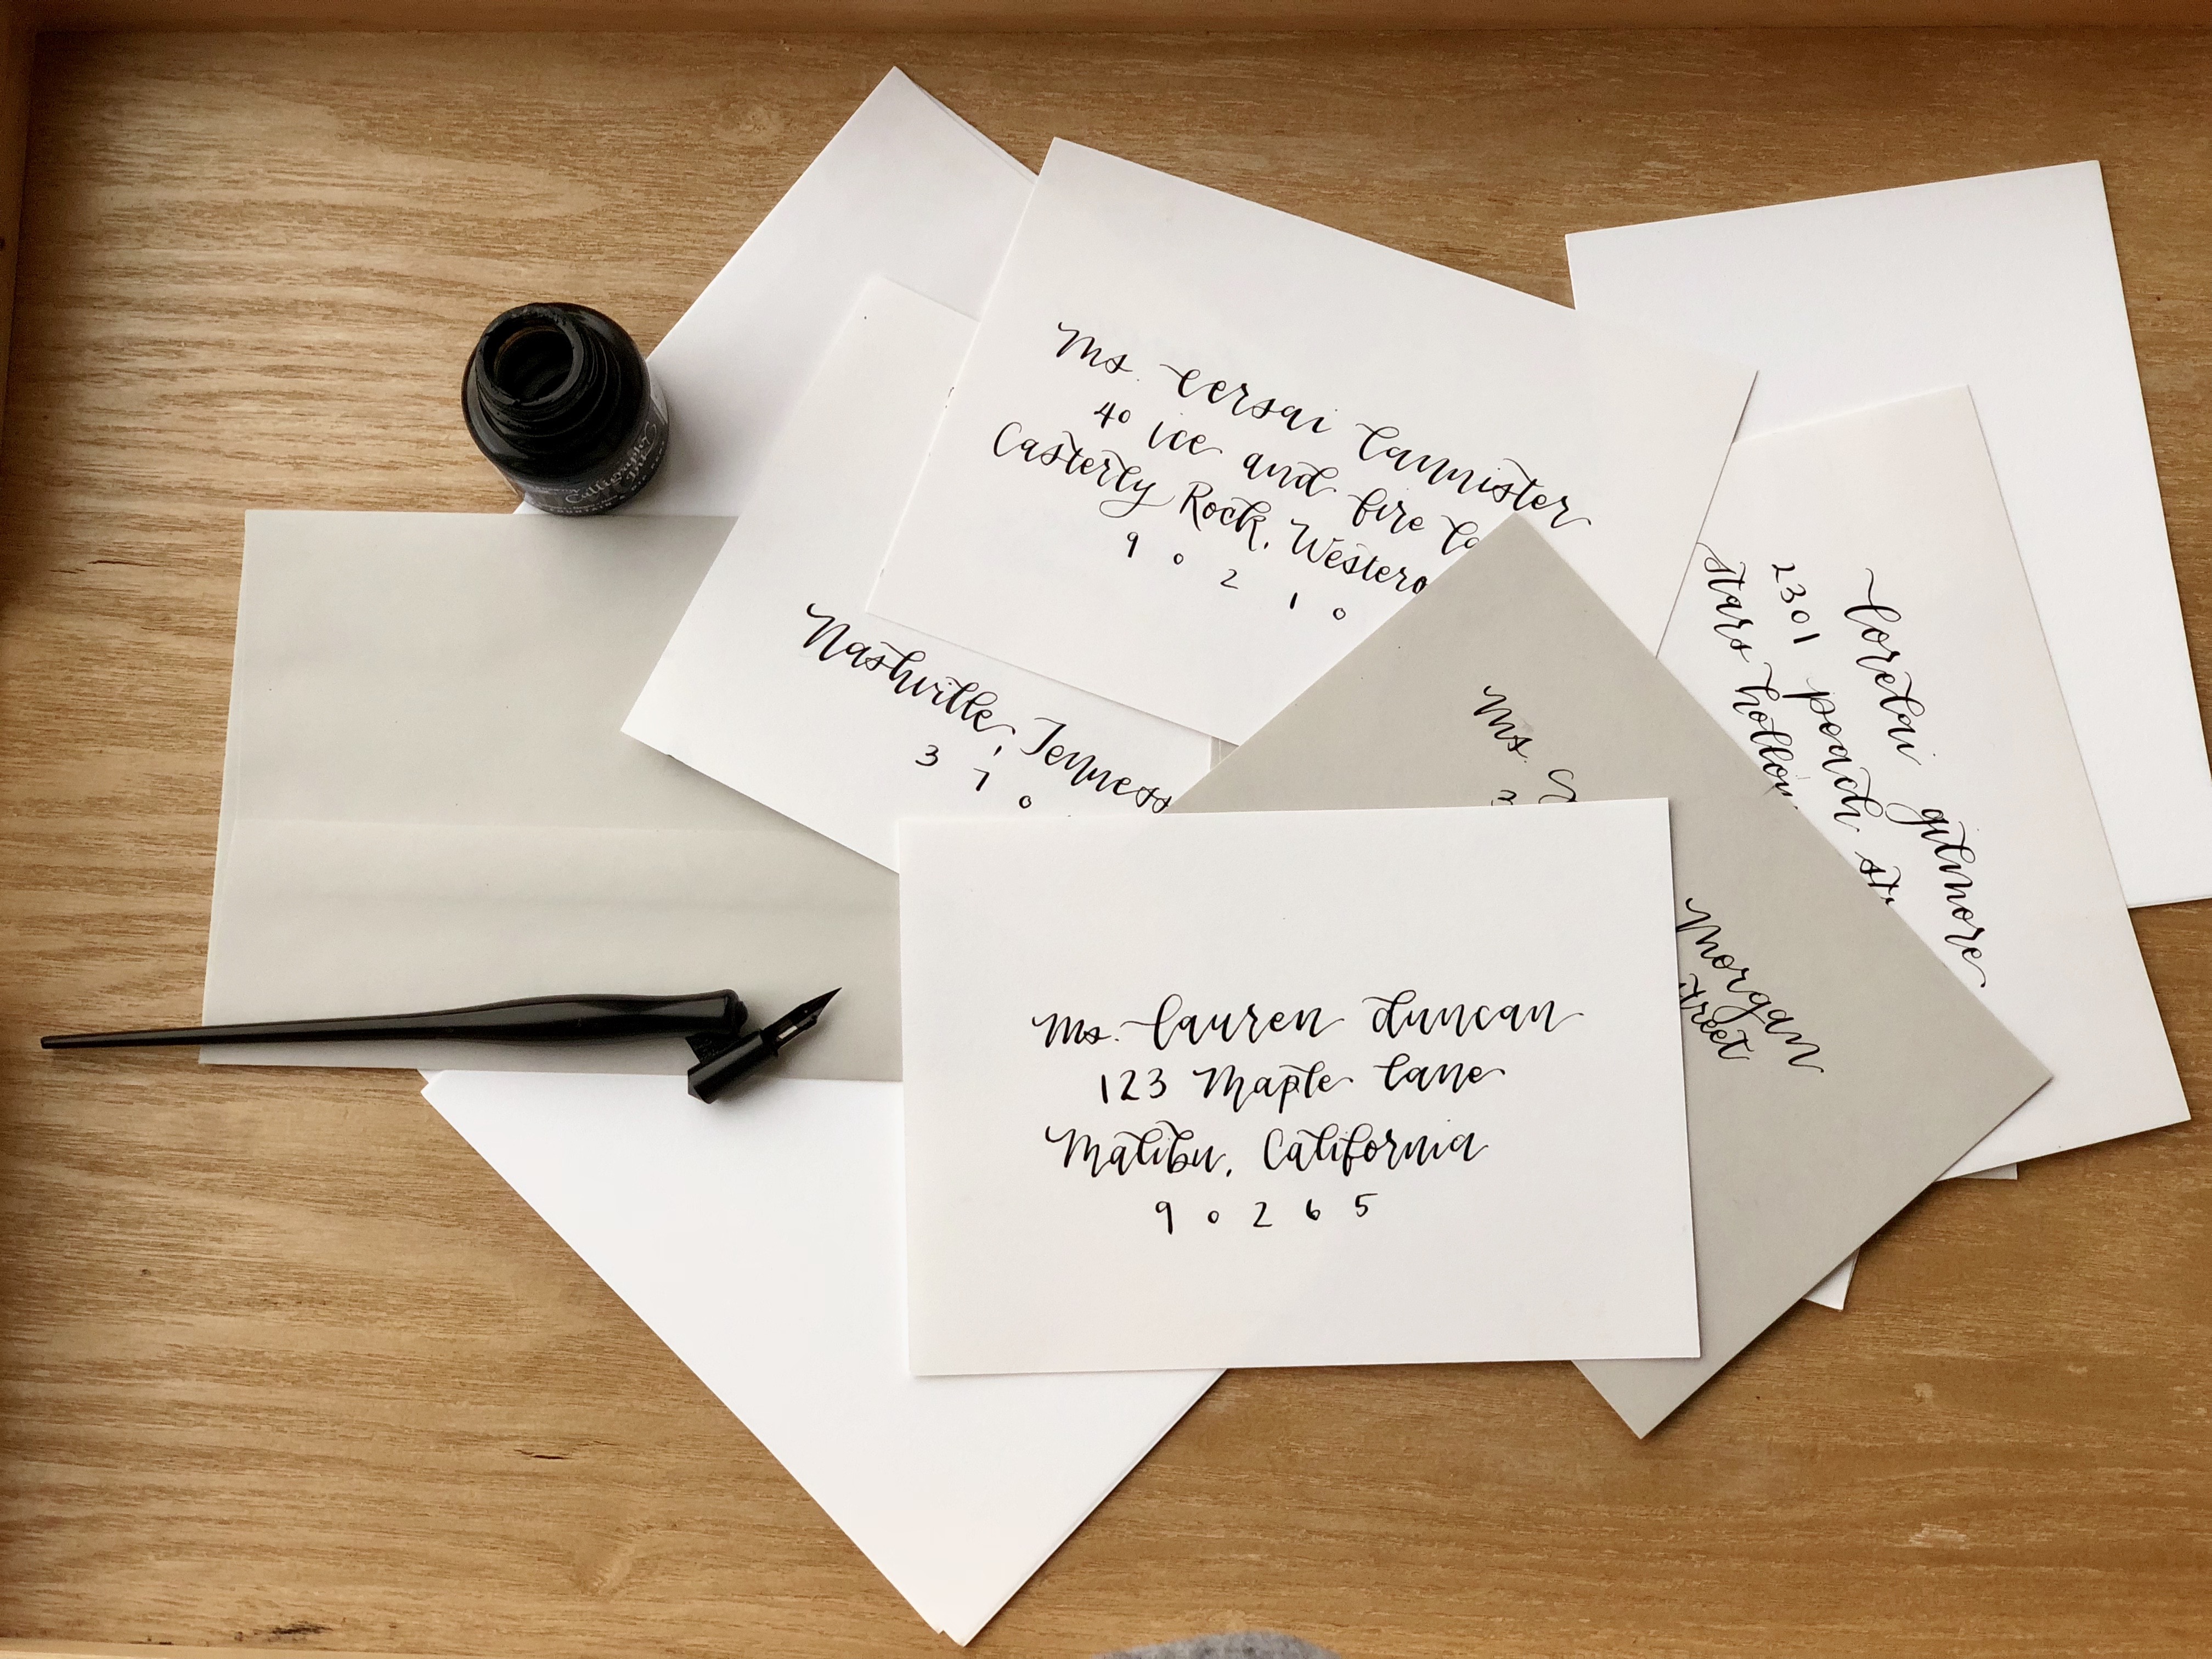 Ms. Cersai Lannister
40 Ice and Fire
Casterly Rock, Westero
9 0 2 1 0
Nashville, Tenness
3 7 0
Lorelai Gilmore
2301 peach st
Stars Hollow
Ms.
Morgan
treet
Ms. Lauren Duncan
123 Maple Lane
Malibu, California
9 0 2 6 5
Calligraphy
Ink